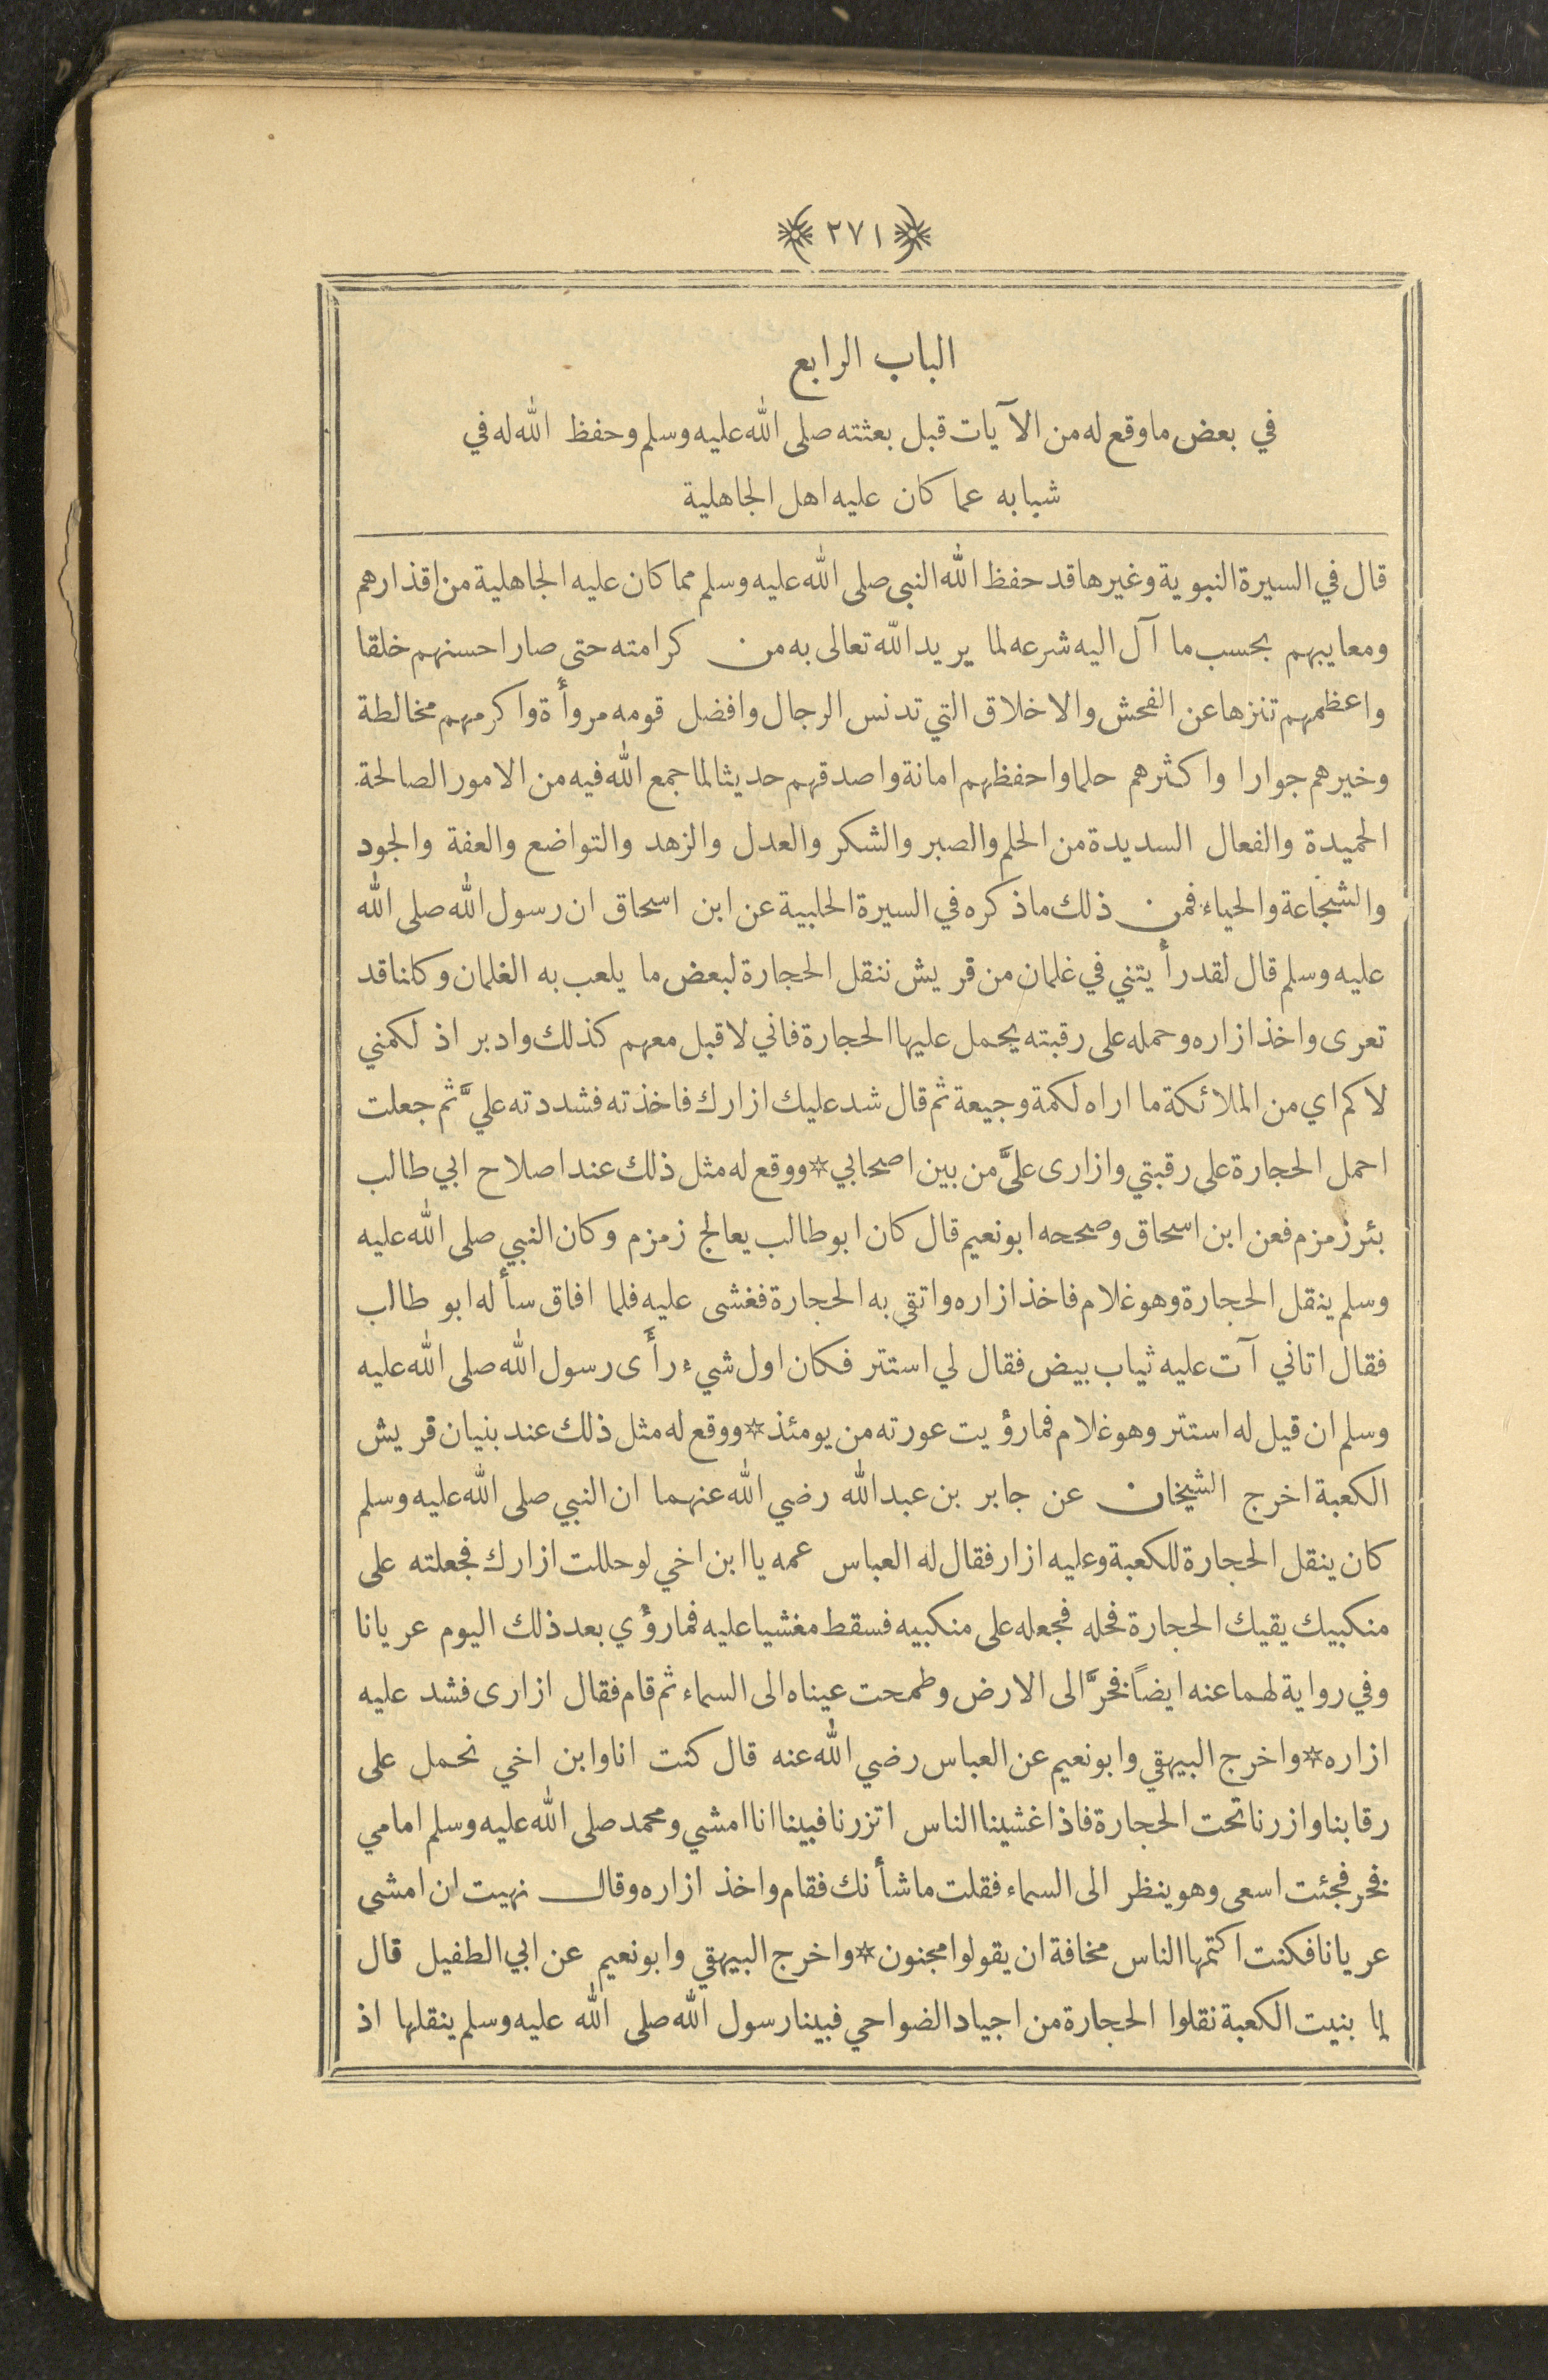 ٢٧١
الباب الرابع
في بعض ما وقع له من الآيات قبل بعثته صلى الله عليه وسلم وحفظ الله له في
شبابه عما كان عليه اهل الجاهلية
قال في السيرة النبوية وغيرها قد حفظ الله النبي صلى الله عليه وسلم مما كان عليه الجاهلية من اقذارهم
ومعايبهم بحسب ما آل اليه شرعه لما يريد الله تعالى به من كرامته حتى صار احسنهم خلقا
واعظمهم تنزها عن الفحش والاخلاق التي تدنس الرجال وافضل قومه مروأة واكرمهم مخالطة
وخيرهم جوارا واكثرهم حلما واحفظهم امانة واصدقهم حديثا لما جمع الله فيه من الامور الصالحة
الحميدة والفعال السديدة من الحلم والصبر والشكر والعدل والزهد والتواضع والعفة والجود
والشجاعة والحياء فمن ذلك ما ذكره في السيرة الحلبية عن ابن اسحاق ان رسول الله صلى الله
عليه وسلم قال لقد رأيتني في غلمان من قريش ننقل الحجارة لبعض ما يلعب به الغلمان وكلنا قد
تعرى واخذ ازاره وحمله على رقبته يحمل عليها الحجارة فاني لاقبل معهم كذلك وادبر اذ لكمني
لاكم اي من الملائكة ما اراه لكمة وجيعة ثم قال شد عليك ازارك فاخذته فشددته عليَّ ثم جعلت
احمل الحجارة على رقبتي وازارى علىَّ من بين اصحابي * ووقع له مثل ذلك عند اصلاح ابي طالب
بئر زمزم فعن ابن اسحاق وصححه ابو نعيم قال كان ابو طالب يعالج زمزم وكان النبي صلى الله عليه
وسلم ينقل الحجارة وهو غلام فاخذ ازاره واتقى به الحجارة فغشى عليه فلما افاق سأله ابو طالب
فقال اتاني آت عليه ثياب بيض فقال لي استتر فكان اول شيء رأى رسول الله صلى الله عليه
وسلم ان قيل له استتر وهو غلام فما رؤيت عورته من يومئذ * ووقع له مثل ذلك عند بنيان قريش
الكعبة اخرج الشيخان عن جابر بن عبدالله رضي الله عنهما ان النبي صلى الله عليه وسلم
كان ينقل الحجارة للكعبة وعليه ازار فقال له العباس عمه يا ابن اخي لو حللت ازارك فجعلته على
منكبيك يقيك الحجارة فحله فجعله على منكبيه فسقط مغشيا عليه فما رؤي بعد ذلك اليوم عريانا
وفي رواية لهما عنه ايضاً فخرَّ الى الارض وطمحت عيناه الى السماء ثم قام فقال ازارى فشد عليه
ازاره * واخرج البيهقي وابو نعيم عن العباس رضي الله عنه قال كنت انا وابن اخي نحمل على
رقابنا وازرنا تحت الحجارة فاذا غشينا الناس اتزرنا فبينا انا امشي ومحمد صلى الله عليه وسلم امامي
فخر فجئت اسعى وهو ينظر الى السماء فقلت ما شأنك فقام واخذ ازاره وقال نهيت ان امشى
عريانا فكنت اكتمها الناس مخافة ان يقولوا مجنون * واخرج البيهقي وابو نعيم عن ابي الطفيل قال
لما بنيت الكعبة نقلوا الحجارة من اجياد الضواحي فبينا رسول الله صلى الله عليه وسلم ينقلها اذ